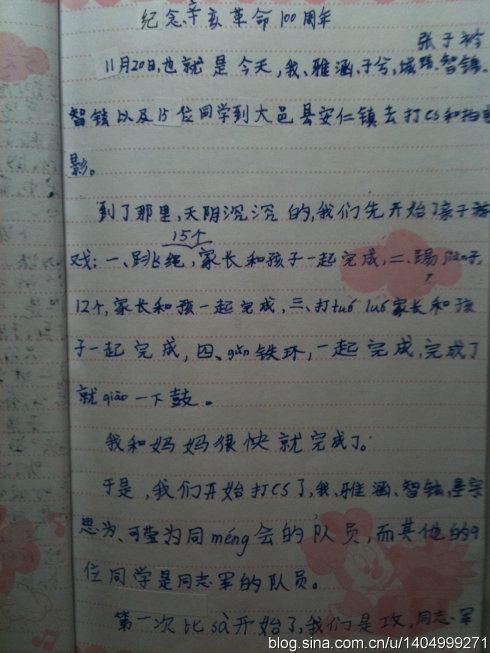 纪念辛亥革命100周年
张子衿
11月20日,也就是今天,我、雅涵、子兮、城、智镜、
智铉以及15位同学到大邑县安仁镇去打CS和拍电
影。
到了那里,天阴沉沉的,我们先开始了亲子游
15个
戏:一、跳绳,家长和孩子一起完成,二、踢
12个,家长和孩一起完成,三、打tuó luó家长和孩
子一起完成,四、gǔn铁环,一起完成,完成了
就qiāo一下鼓。
我和妈妈很快就完成了。
于是,我们开始打CS了,我、雅涵、智铉、
思为、可莹为同méng会的队员,而其他的9
位同学是同志军的队员。
第一次比sài开始了,我们是攻,同志军
blog.sina.com.cn/u/1404999271